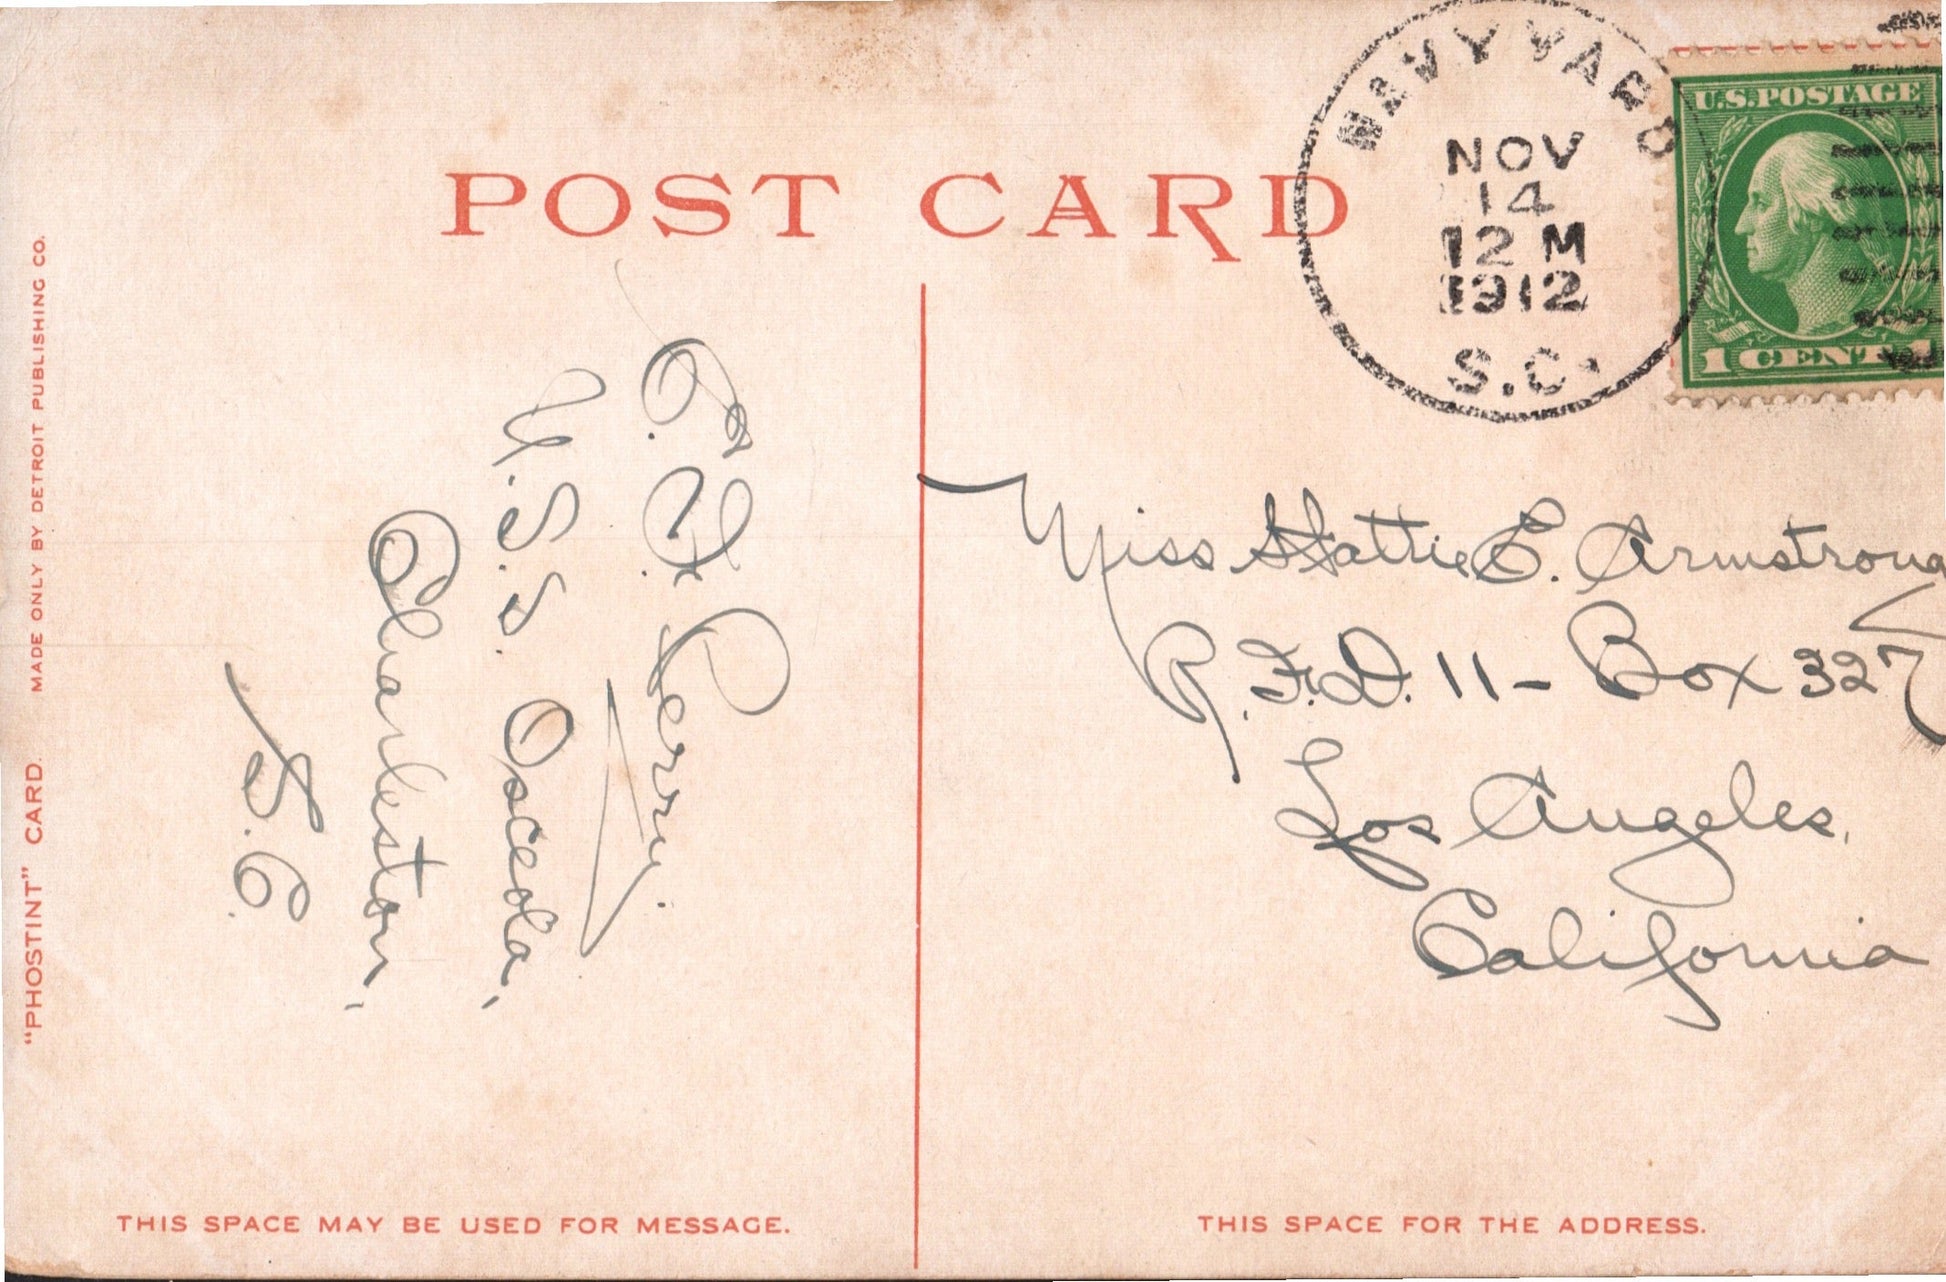 POST CARD
NAVY YARD
NOV
14
12 M
1912
S.C.
U.S. POSTAGE
1 CENT 1
"PHOSTINT" CARD. MADE ONLY BY DETROIT PUBLISHING CO.
Perry.
U.S.S. Osceola,
Charleston,
S.C.
Miss Hattie E. Armstrong
R.F.D. 11 - Box 327
Los Angeles,
California
THIS SPACE MAY BE USED FOR MESSAGE.
THIS SPACE FOR THE ADDRESS.